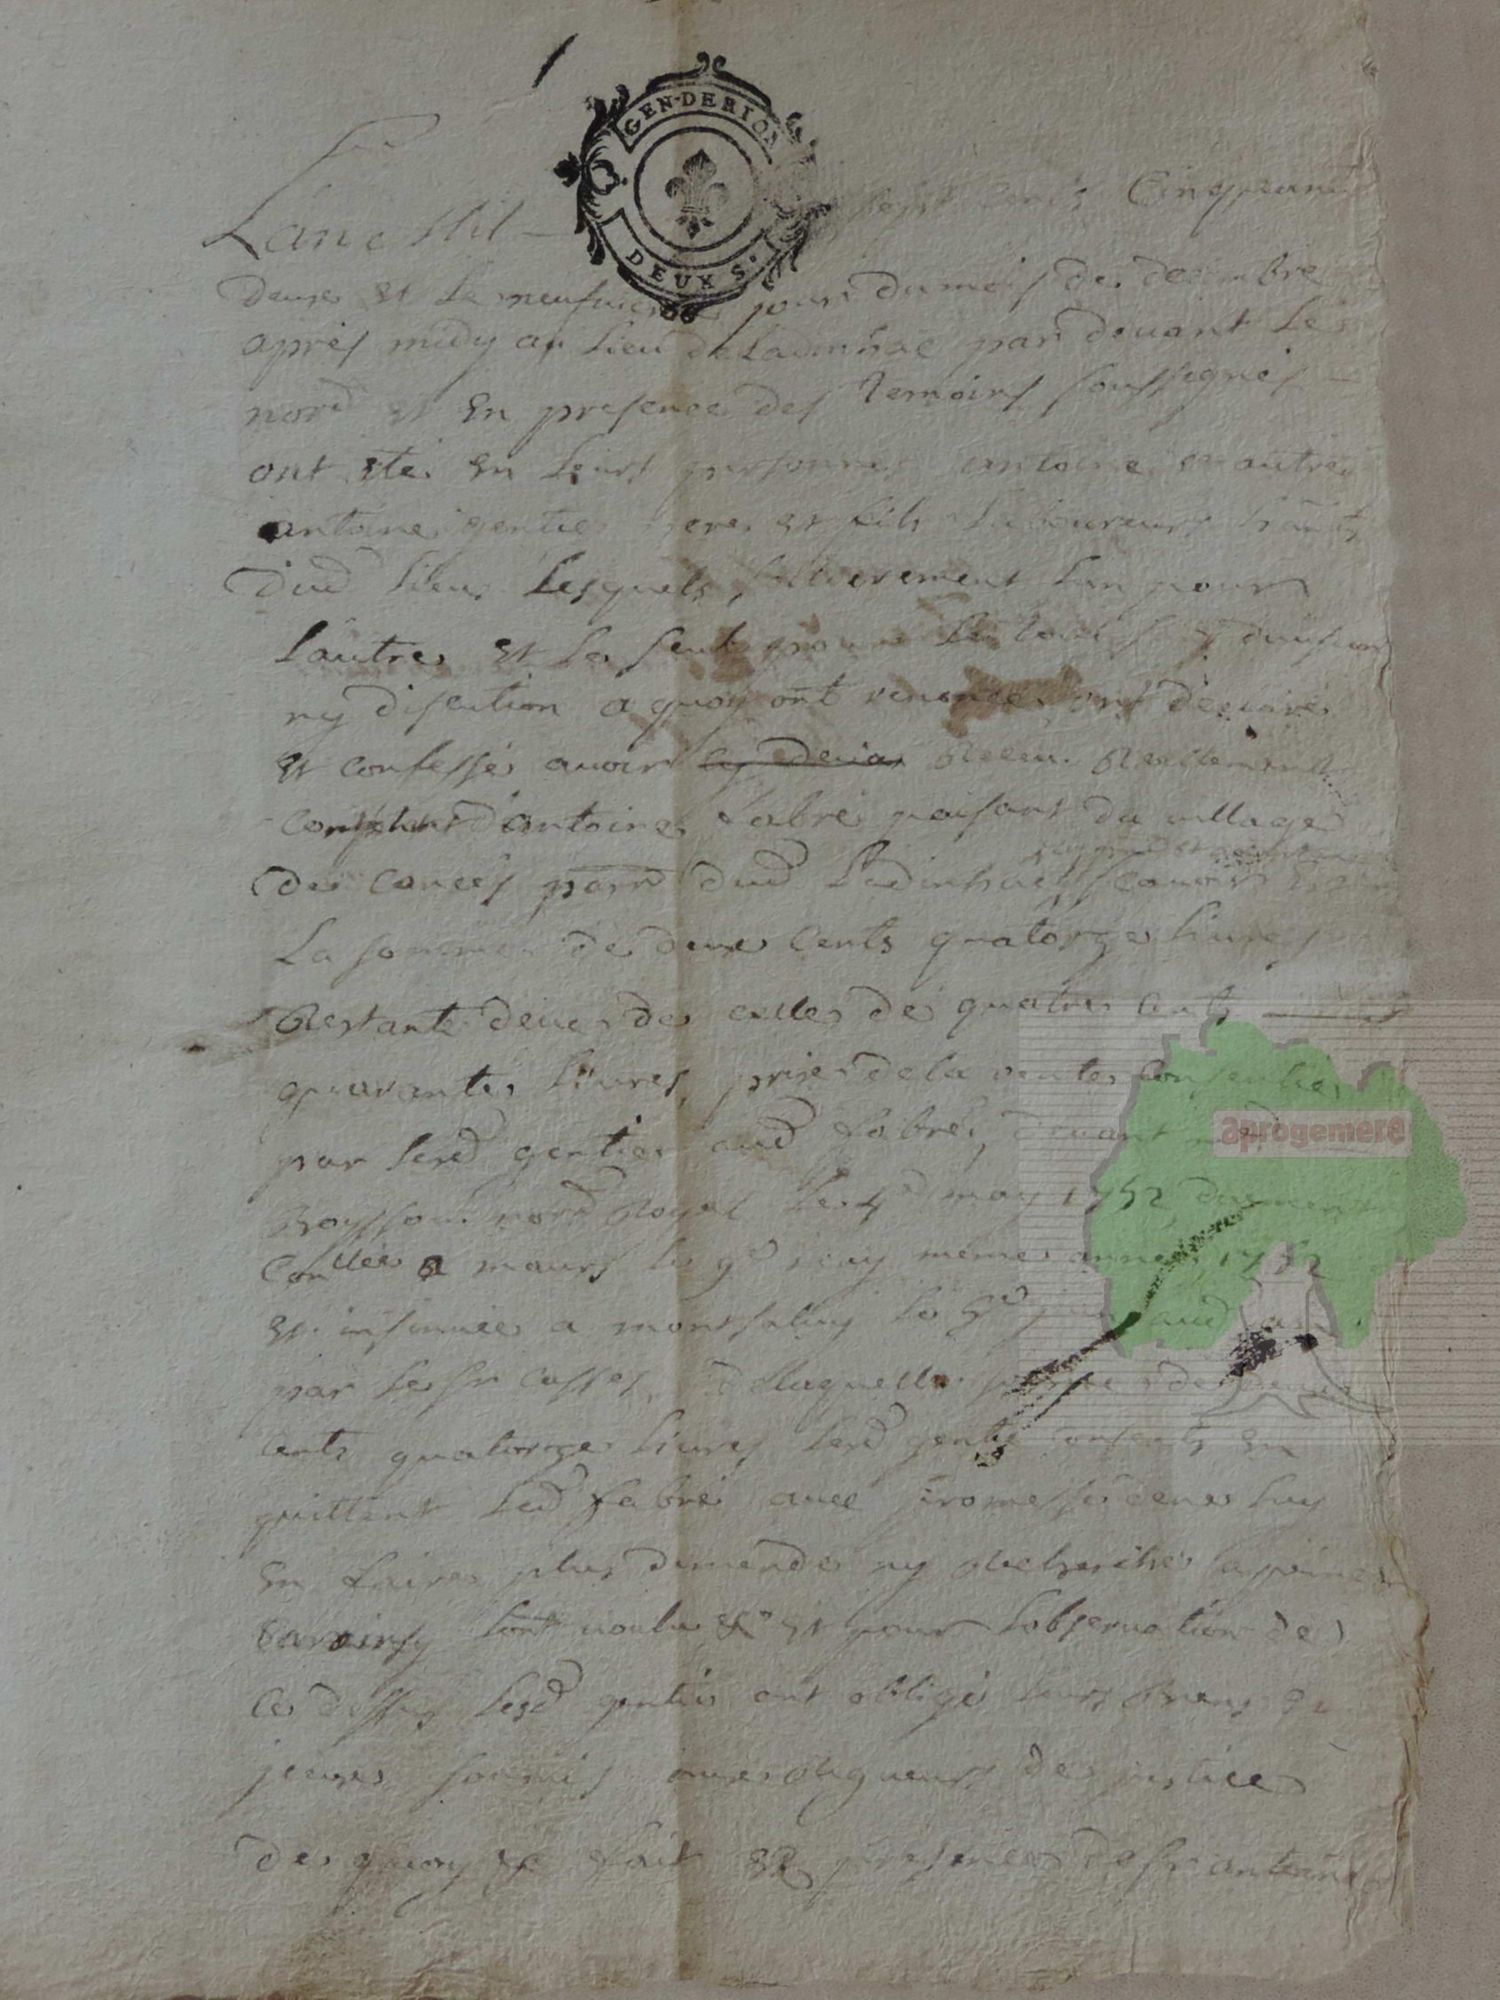 GEN·DERIOM
DEUX S.
Lan e Mil sept cents Cinquante
deux et le neufuieme jour du mois de decembre
apres midy au lieu de Ladinhac par deuant le
nore et En presence des temoins soussignes
ont ete En leurs personnes antoine et autre
antoine gentie pere et fils laboureurs
dud lieu Lesquels solidairement lun pour
lautre et le seul pour le tout division
ny discution a quoy ont renonce ont declare
et confesse auoir receu reellement
Comptant d'antoine fabre paisant du village
de parr dud Ladinhac scauoir
La somme de deux cents quatorze liures
Restante deue de celle de quatre cents
quarante liures prix de la vente consentie
par lesd gentie aud fabre, deuant
Boyssou nore Royal le may 1752
Conllee a maurs le 9e may meme annee 1752
et insinuee a montsaluy le
par le sr Casses, de laquelle somme de deux
cents quatorze liures lesd gentie En
quittent led fabre auec promesse de ne luy
En faire plus demande ny Recherche a peine
lont voulu et pour lobseruation de
ce dessus lesd gentie ont oblige leurs Biens
soumis aux Rigueurs de justice
de quoy fait En presence de sr antoine
aprogemere